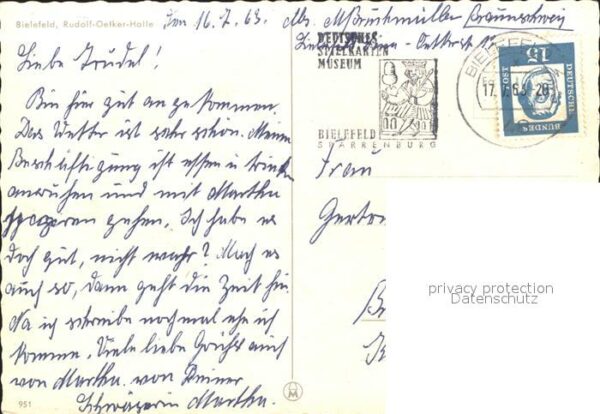 Bielefeld, Rudolf-Oetker-Halle
den 16.7.63.
Liebe Trudel!
Bin hier gut angekommen.
Das Wetter ist sehr schön. Meine
Beschäftigung ist essen u. trinken
ausruhen und mit Martha
spazieren gehen. Ich habe es
doch gut, nicht wahr? Mach es
auch so, dann geht die Zeit hin.
Na ich schreibe nochmal ehe ich
komme. Viele liebe Grüße auch
von Martha. von Deiner
Schwägerin Martha.
951
Abs. Braunschweig
DEUTSCHES
SPIELKARTEN
MUSEUM
BIELEFELD
SPARRENBURG
BIELEFELD
17.7.63-20
15
DEUTSCHE
BUNDES
POST
Frau
Gertr
privacy protection
Datenschutz